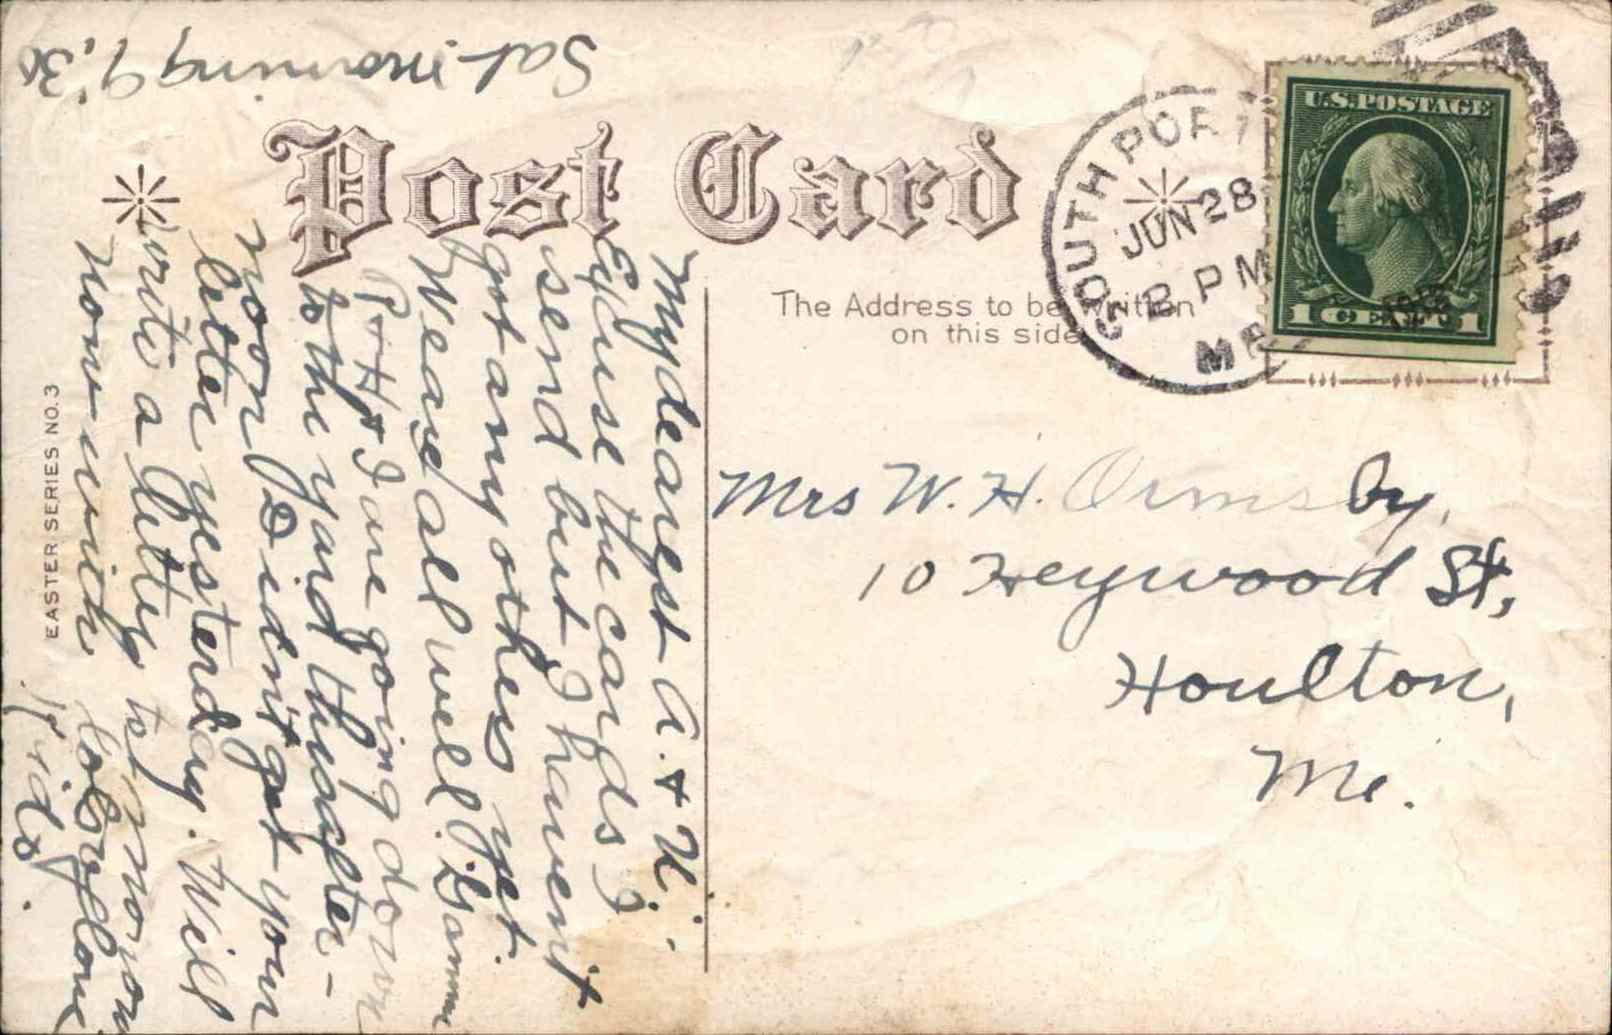 Sat. morning 9:30
Post Card
SOUTH PORT
JUN 28
2 PM
ME
U.S. POSTAGE
1 CENT 1
The Address to be written
on this side
EASTER SERIES NO. 3
My dearest A. & U. -
Excuse the cards I
send but I havent
got any others yet.
We are all well.
P & H & I are going down
to the yard this after-
noon. Didn't get your
letter yesterday. Will
write a letter tomorrow
Now with lots of love
Mrs W. H. Ormsby,
10 Heywood St,
Houlton,
Me.